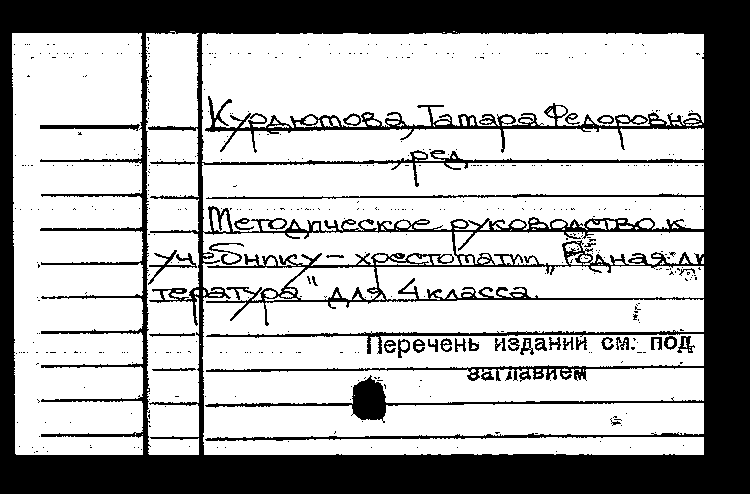 Курдюмова, Тамара Федоровна
, ред.
Методическое руководство к
учебнику - хрестоматии „Родная ли
тература" для 4 класса.
Перечень изданий см. под
заглавием